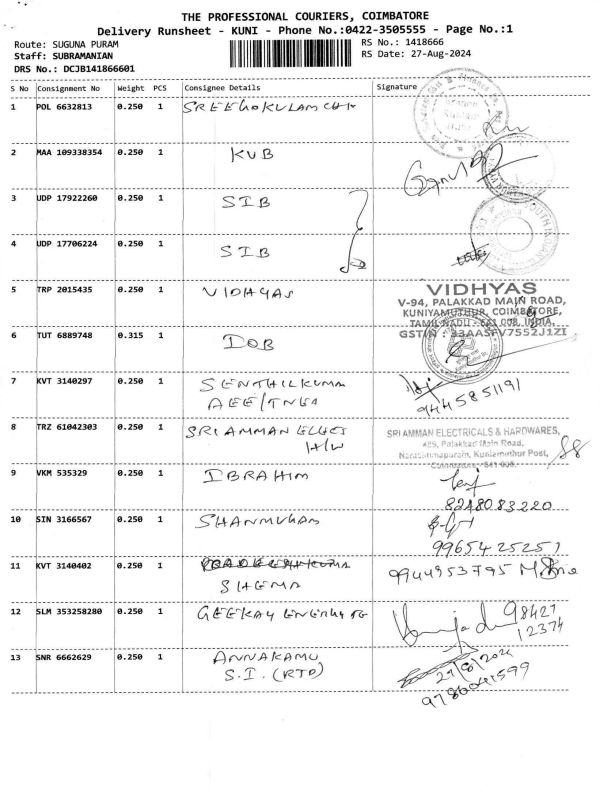 THE PROFESSIONAL COURIERS, COIMBATORE
Delivery Runsheet - KUNI - Phone No.:0422-3505555 - Page No.:1
Route: SUGUNA PURAM RS No.: 1418666
Staff: SUBRAMANIAN RS Date: 27-Aug-2024
DRS No.: DCJB141866601
S No Consignment No Weight PCS Consignee Details Signature
1 POL 6632813 0.250 1 SREEGOKULAM CHI
2 MAA 109338354 0.250 1 KVB
3 UDP 17922260 0.250 1 SIB
4 UDP 17706224 0.250 1 SIB
5 TRP 2015435 0.250 1 VIDHYAS
VIDHYAS
V-94, PALAKKAD MAIN ROAD,
KUNIYAMUTHUR, COIMBATORE,
TAMIL NADU - 641 008, INDIA.
GSTIN : 33AASFV7552J1ZI
6 TUT 6889748 0.315 1 IOB
7 KVT 3140297 0.250 1 SENTHILKUMA
AEE/TNEB
9445851191
8 TRZ 61042303 0.250 1 SRI AMMAN ELECT
H/W
SRI AMMAN ELECTRICALS & HARDWARES,
Palakkad Main Road,
Narasimhapuram, Kuniamuthur Post,
Coimbatore - 641 008.
9 VKM 535329 0.250 1 IBRAHIM
8248083220
10 SIN 3166567 0.250 1 SHANMUGAM
9965425251
11 KVT 3140402 0.250 1
SHEMA
9944953795
12 SLM 353258280 0.250 1 GEEKAY
98427
12374
13 SNR 6662629 0.250 1 ANNAKAMU
S.I. (RTD)
27/8/2024
9786041599